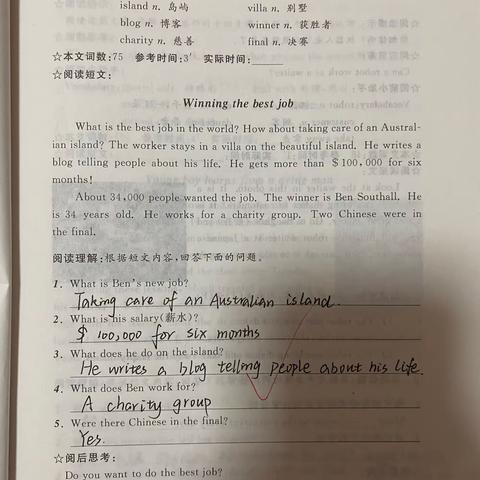 island n. 岛屿 villa n. 别墅
blog n. 博客 winner n. 获胜者
charity n. 慈善 final n. 决赛
☆本文词数:75 参考时间:3′ 实际时间:
☆阅读短文:
Winning the best job
What is the best job in the world? How about taking care of an Austral-
ian island? The worker stays in a villa on the beautiful island. He writes a
blog telling people about his life. He gets more than $100,000 for six
months!
About 34,000 people wanted the job. The winner is Ben Southall. He
is 34 years old. He works for a charity group. Two Chinese were in
the final.
阅读理解:根据短文内容,回答下面的问题。
1. What is Ben's new job?
Taking care of an Australian island.
2. What is his salary(薪水)?
$ 100,000 for six months
3. What does he do on the island?
He writes a blog telling people about his life.
4. What does Ben work for?
A charity group
5. Were there Chinese in the final?
Yes.
☆阅后思考:
Do you want to do the best job?